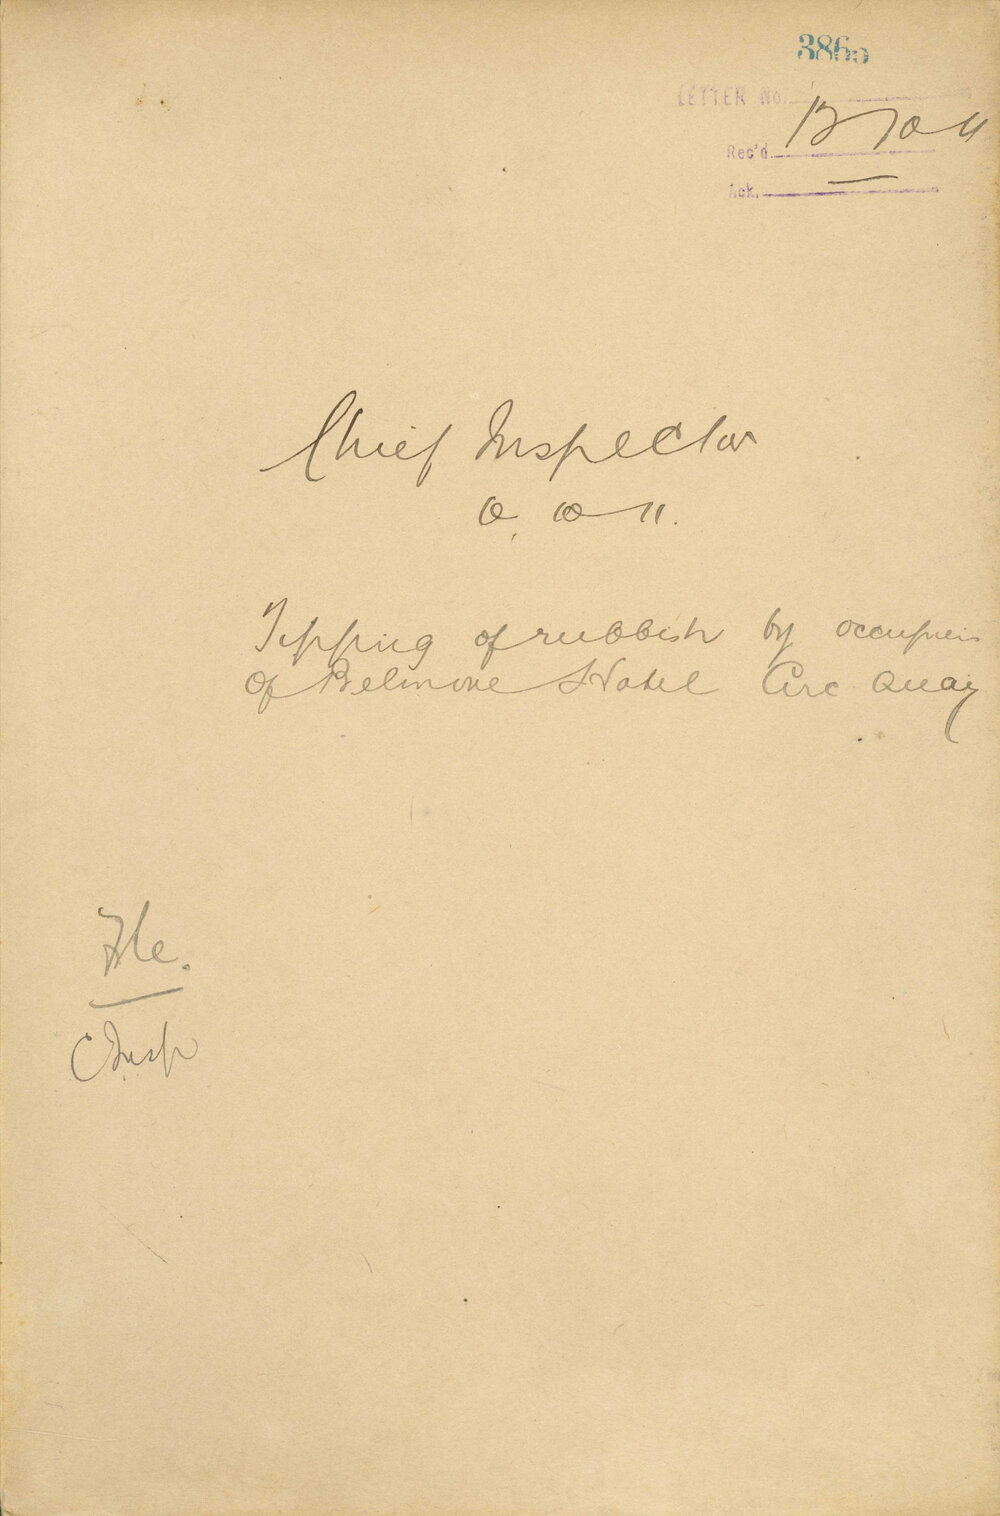 3865
LETTER No.
Rec'd 13 10 11
Ack. —
Chief Inspector
10 11.
Tipping of rubbish by occupiers
of Belmore Hotel Circ Quay
File.
C Insp